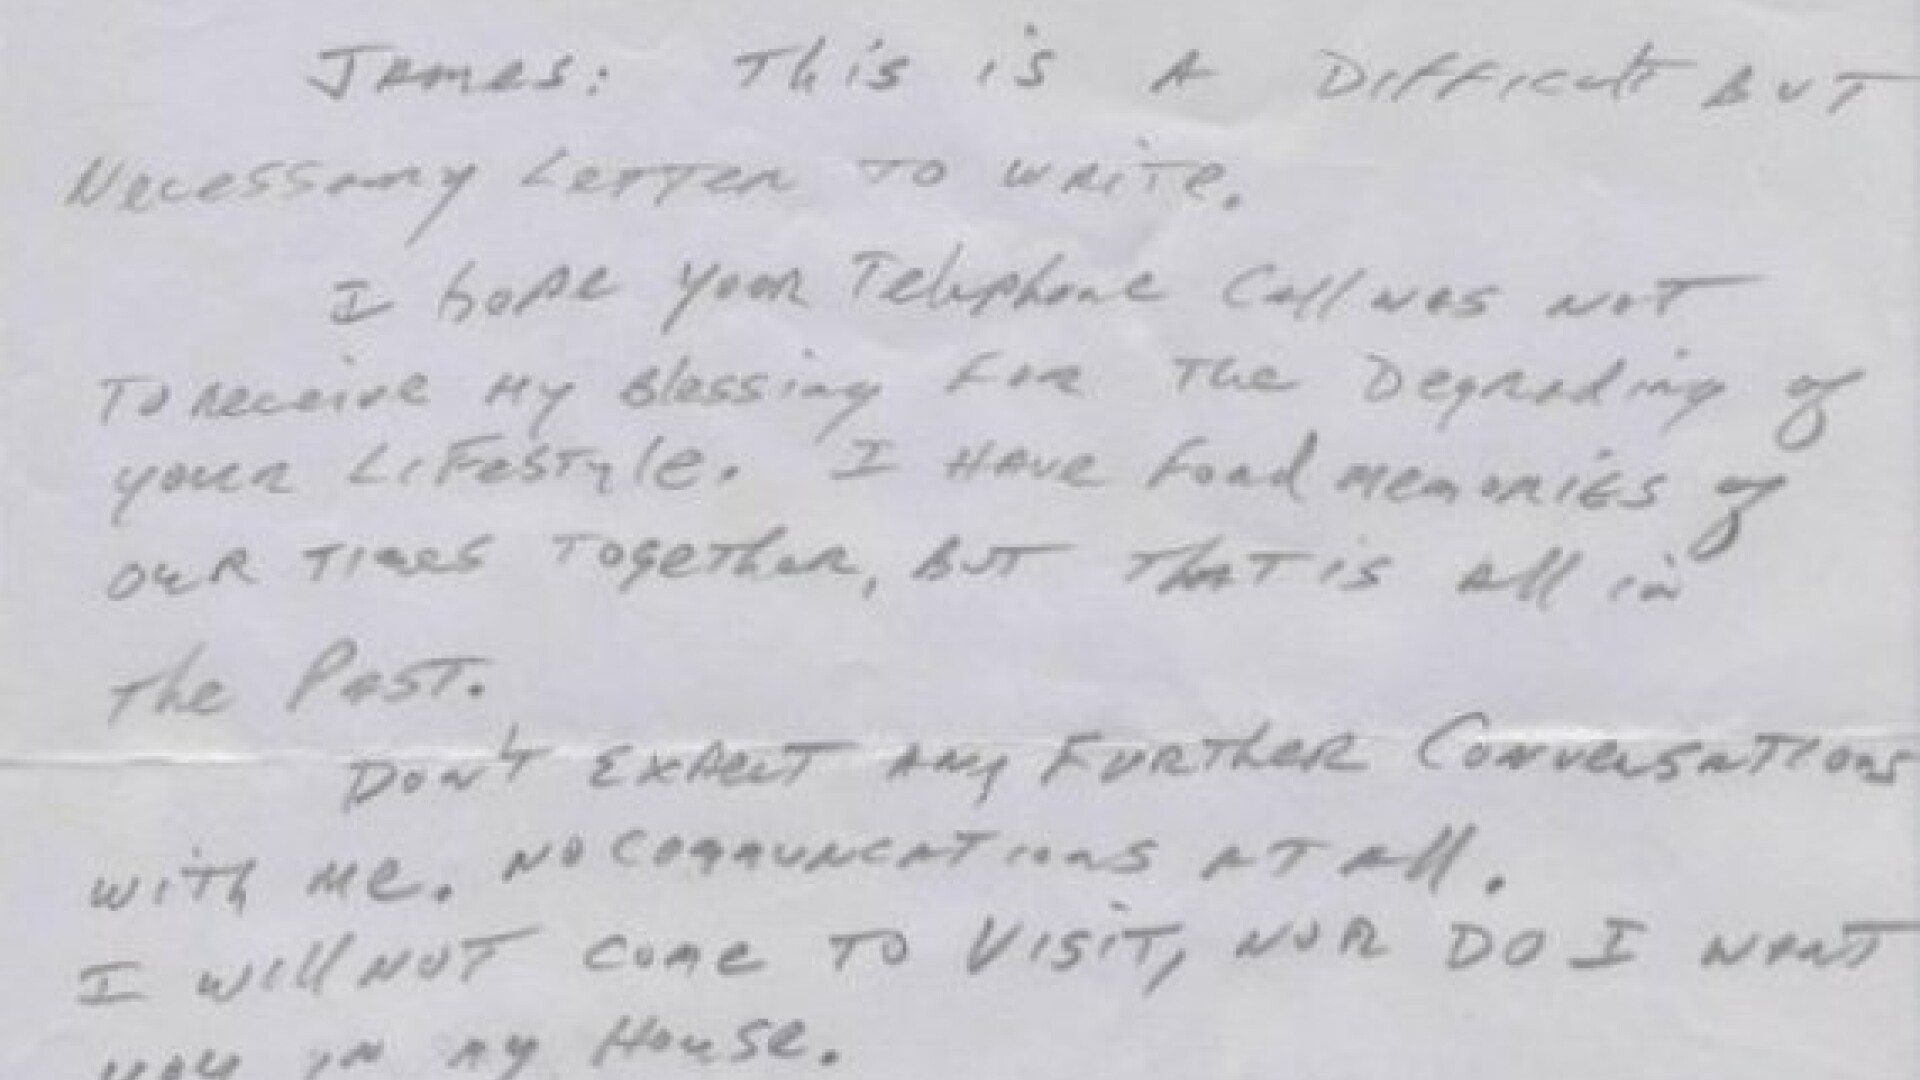 James: This is A Difficult But
Necessary Letter to write.
I hope your Telephone Call was not
To receive my Blessing for the Degrading of
your Lifestyle. I have fond memories of
our times together, but that is all in
the Past.
Don't expect any Further Conversations
with me. No communcations at all.
I will not come to visit, nor do I want
you in my House.